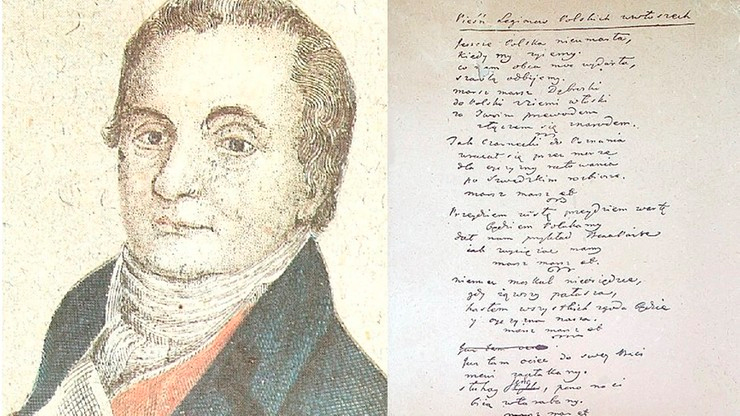 Pieśń Legionów Polskich we Włoszech
Jeszcze Polska nie umarła,
kiedy my żyjemy.
co nam obca moc wydarła,
szablą odbijemy.
marsz marsz Dąbrowski
do Polski z ziemi włoski
za Twoim przewodem
złączem się z narodem.
Jak Czarnecki do Poznania
wracał się przez morze
dla ojczyzny ratowania
po szwedzkim rozbiorze.
marsz marsz etc
Przejdziem Wisłę przejdziem Wartę
będziem Polakamy
dał nam przykład Bonaparte
jak zwyciężać mamy
marsz marsz etc.
niemiec moskal nie osiędzie,
gdy jąwszy pałasza,
hasłem wszystkich zgoda będzie
y ojczyzna nasza.
marsz marsz etc
Już tam
Już tam ociec do swey Basi
mówi zapłakany.
słuchay jeno, pono nasi
biją w tarabany.
marsz marsz etc